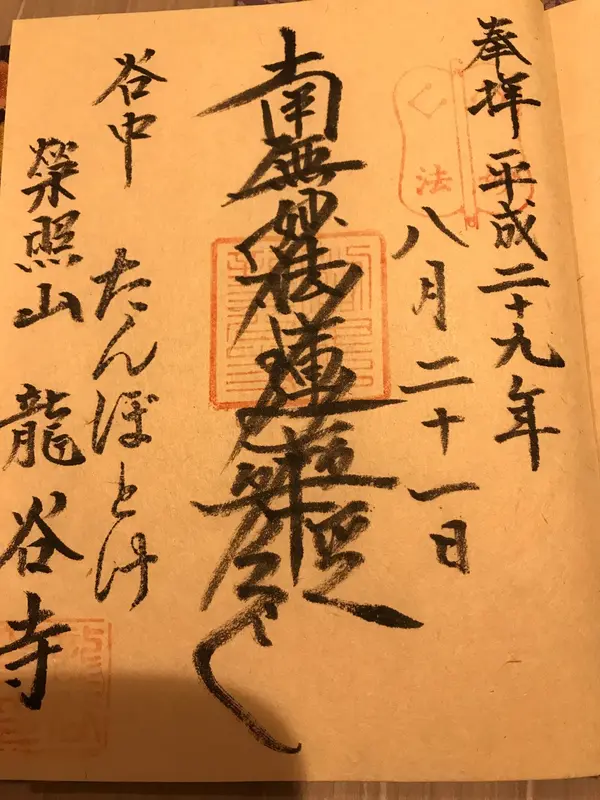 奉拝 平成二十九年
八月二十一日
南無妙法蓮華經
谷中 たんぼとけ
榮照山 龍谷寺
法